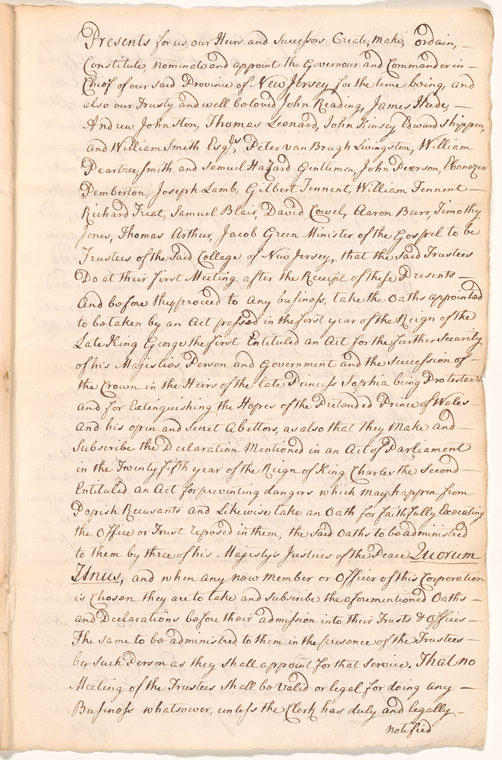 Presents for us our Heirs and Successors Create, Make, Ordain, -
Constitute Nominate and appoint the Governour and Commander in -
Chief of our said Province of New Jersey for the time being, and
also our Trusty and well beloved John Reading, James Hude -
Andrew Johnston, Thomas Leonard, John Kinsey Edward Shippen,
and William Smith Esqrs, Peter van Brugh Livingston, William
Peartree Smith and Samuel Hazard Gentlemen, John Pierson, Ebenezer
Pemberton, Joseph Lamb, Gilbert Tennent, William Tennent -
Richard Treat, Samuel Blair, David Cowel, Aaron Burr, Timothy
Jones, Thomas Arthur, Jacob Green Minister of the Gospel to be
Trustees of the Said College of New Jersey, that the said Trustees
Do at their first Meeting after the Receipt of these Presents -
And before they proceed to any business, take the Oaths appointed
to be taken by an Act passed in the first year of the Reign of the
Late King George the first Entituled an Act for the further Security
of his Majesties Person and Government and the Succession of -
the Crown in the Heirs of the late Princess Sophia being Protestants
and for Extinguishing the Hopes of the Pretended Prince of Wales
and his open and Secret Abettors, as also that they Make and -
Subscribe the Declaration Mentioned in an Act of Parliament
in the Twenty fifth year of the Reign of King Charles the Second -
Entituled an Act for preventing dangers which may happen from
Popish Recusants and Likewise take an Oath for faithfully Executing
the Office or Trust reposed in them, the said Oaths to be administred
to them by three of his Majesty's Justices of the Peace Quorum
Unus, and when any new Member or Officer of this Corporation
is Chosen they are to take and subscribe the aforementioned Oaths -
and Declarations before their admission into their Trusts & Offices -
The same to be administred to them in the presence of the Trustees -
by such Person as they shall appoint for that service. That no
Meeting of the Trustees Shall be Valid or legal for doing any -
Business whatsoever, unless the Clerk has duly and legally -
notified